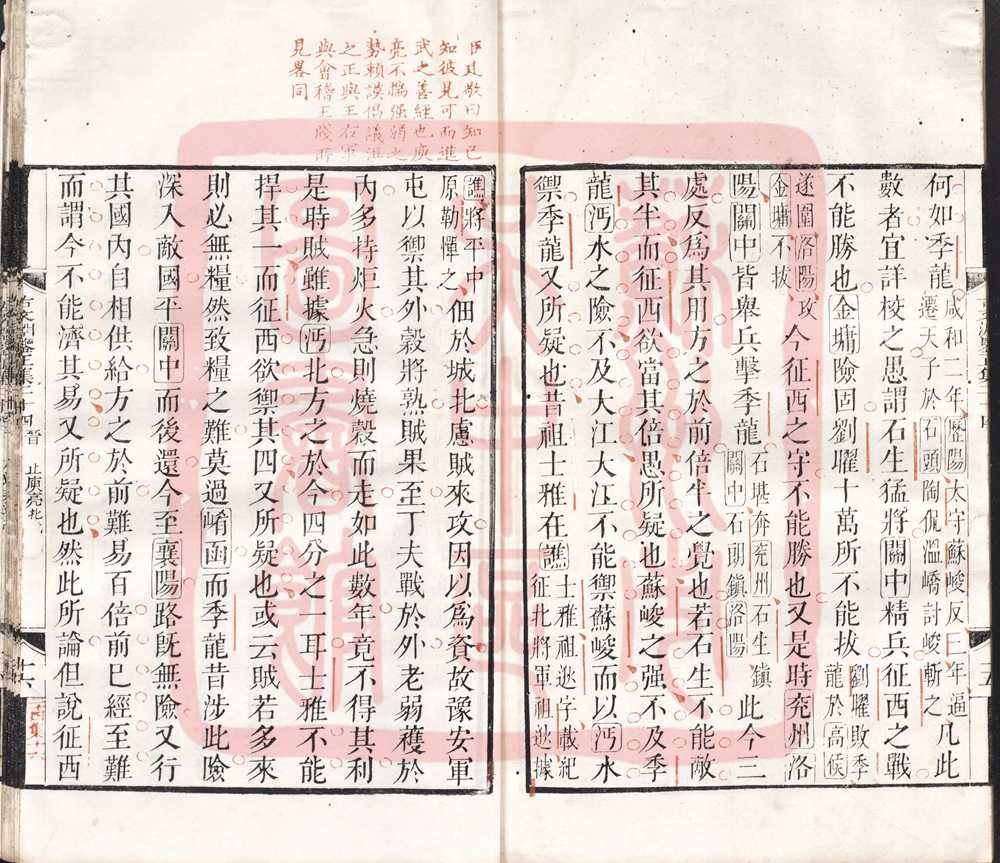 何如季龍咸和二年歷陽太守蘇峻反三年逼
遷天子於石頭陶侃溫嶠討峻斬之凡此
數者宜詳校之愚謂石生猛將關中精兵征西之戰
不能勝也金墉險固劉曜十萬所不能拔劉曜敗季
龍於高候
遂圍洛陽攻
金墉不拔今征西之守不能勝也又是時兖州洛
陽關中皆舉兵擊季龍石堪奔兖州石生鎮
關中石朗鎮洛陽此今三
處反爲其用方之於前倍半之覺也若石生不能敵
其半而征西欲當其倍愚所疑也蘇峻之强不及季
龍沔水之險不及大江大江不能禦蘇峻而以沔水
禦季龍又所疑也昔祖士雅在譙士雅祖逖字載紀
征北將軍祖逖據
臣廷敬曰知己
知彼見可而進
武之善經也庾
亮不揣强弱之
勢賴謨倡議
之正與王右軍
與會稽王牋所
見畧同
譙將平中
原勒憚之佃於城北慮賊來攻因以爲資故豫安軍
屯以禦其外穀將熟賊果至丁夫戰於外老弱穫於
內多持炬火急則燒穀而走如此數年竟不得其利
是時賊雖據沔北方之於今四分之一耳士雅不能
捍其一而征西欲禦其四又所疑也或云賊若多來
則必無糧然致糧之難莫過崤函而季龍昔涉此險
深入敵國平關中而後還今至襄陽路旣無險又行
其國內自相供給方之於前難易百倍前已經至難
而謂今不能濟其易又所疑也然此所論但說征西
古文淵鑒卷二十四 晉 止庾亮北
十六